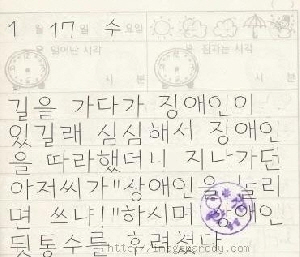 1 월 17 일 수 요일
일어난 시각 잠자는 시각
시 분 시 분
길을 가다가 장애인이
있길래 심심해서 장애인
을 따라했더니 지나가던
아저씨가 "장애인을 놀리
면 쓰냐!" 하시며 장애인
뒷통수를 후려쳤다